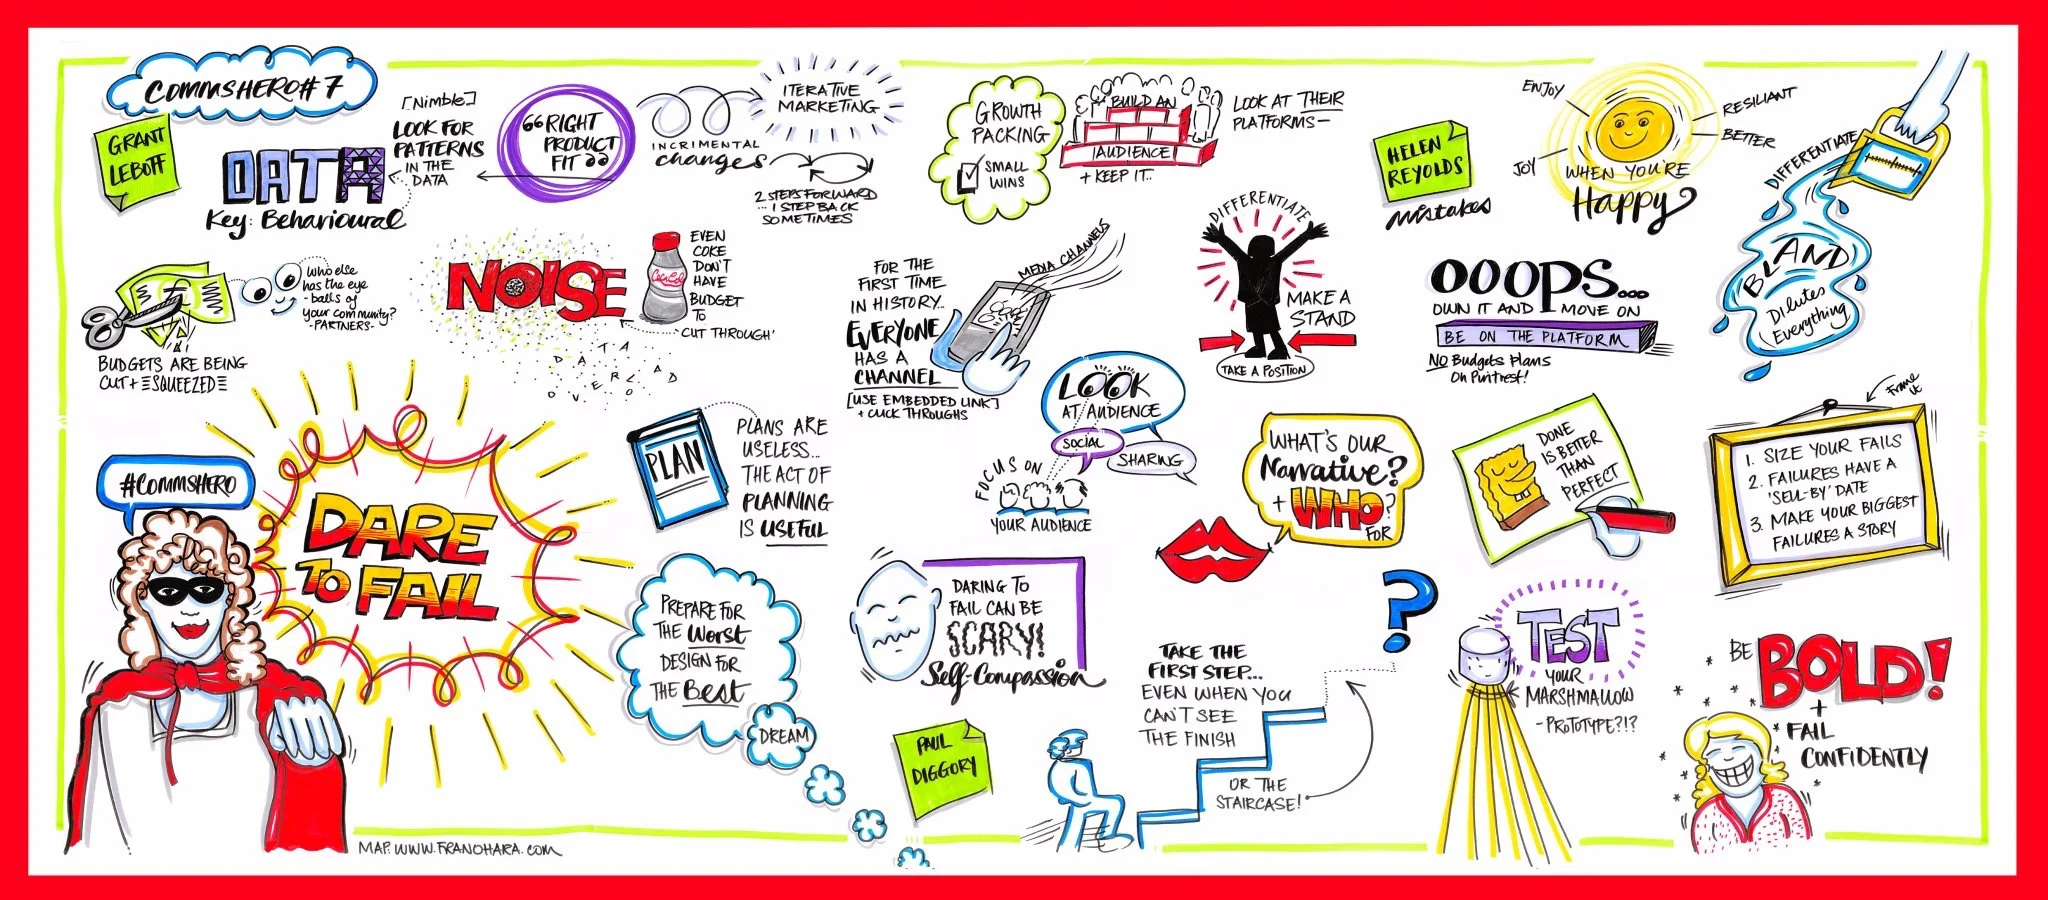 COMMSHERO#7
GRANT
LEBOFF
DATA
Key: Behavioural
[Nimble]
LOOK FOR
PATTERNS
IN THE
DATA
"RIGHT
PRODUCT
FIT"
INCRIMENTAL
changes
ITERATIVE
MARKETING
2 STEPS FORWARD
... 1 STEP BACK
SOMETIMES
GROWTH
PACKING
SMALL
WINS
BUILD AN
AUDIENCE
+ KEEP IT..
LOOK AT THEIR
PLATFORMS-
HELEN
REYOLDS
mistakes
ENJOY
RESILIANT
BETTER
JOY
WHEN YOU'RE
Happy
DIFFERENTIATE
BLAND
Dilutes
Everything
BUDGETS ARE BEING
CUT + SQUEEZED
who else
has the eye
-balls of
your community?
-PARTNERS-
NOISE
EVEN
COKE
DON'T
HAVE
BUDGET
TO
'CUT THROUGH'
Coca-Cola
DATA
OVERLOAD
FOR THE
FIRST TIME
IN HISTORY..
EVERYONE
HAS A
CHANNEL
[USE EMBEDDED LINK]
+ CLICK THROUGHS
MEDIA CHANNELS
LOOK
AT AUDIENCE
SOCIAL
SHARING
FOCUS ON
YOUR AUDIENCE
DIFFERENTIATE
MAKE A
STAND
TAKE A POSITION
OOOPS...
OWN IT AND MOVE ON
BE ON THE PLATFORM
NO Budgets Plans
On Pintrest!
#COMMSHERO
DARE
TO FAIL
PLAN
PLANS ARE
USELESS...
THE ACT OF
PLANNING
IS USEFUL
WHAT'S OUR
Narrative?
+ WHO?
FOR
DONE
IS BETTER
THAN
PERFECT
Frame
it
1. SIZE YOUR FAILS
2. FAILURES HAVE A
'SELL-BY' DATE
3. MAKE YOUR BIGGEST
FAILURES A STORY
PREPARE FOR
THE Worst
DESIGN FOR
THE Best
DREAM
DARING TO
FAIL CAN BE
SCARY!
Self-Compassion
PAUL
DIGGORY
TAKE THE
FIRST STEP...
EVEN WHEN YOU
CAN'T SEE
THE FINISH
OR THE
STAIRCASE!
?
TEST
YOUR
MARSHMALLOW
-PROTOTYPE?!?
BE BOLD!
+
FAIL
CONFIDENTLY
MAP: WWW.FRANOHARA.COM